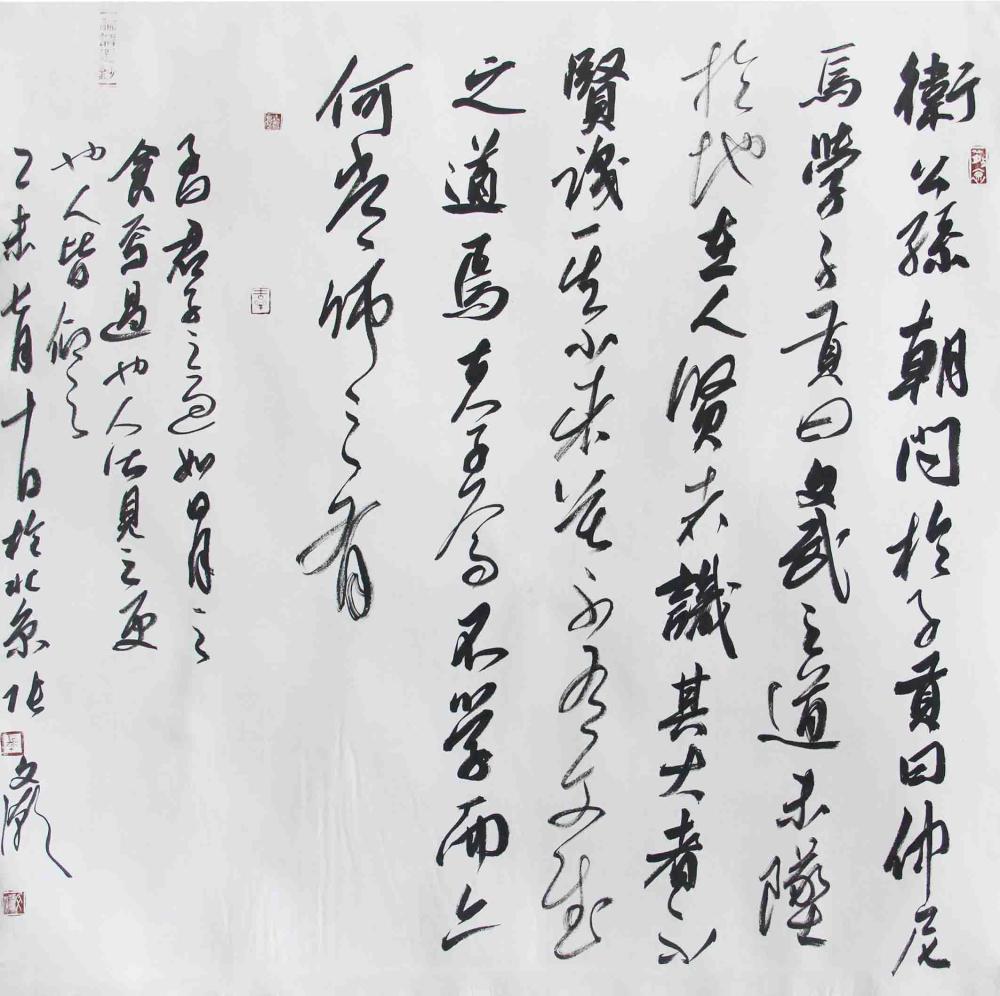 衛公孫朝問於子貢曰仲尼
焉學子貢曰文武之道未墜
於地在人賢者識其大者不
賢識其小者莫不有文武
之道焉夫子焉不學而亦
何常師之有
君子之過如日月之
食焉過也人皆見之更
也人皆仰之
乙未七月十日於北京張文